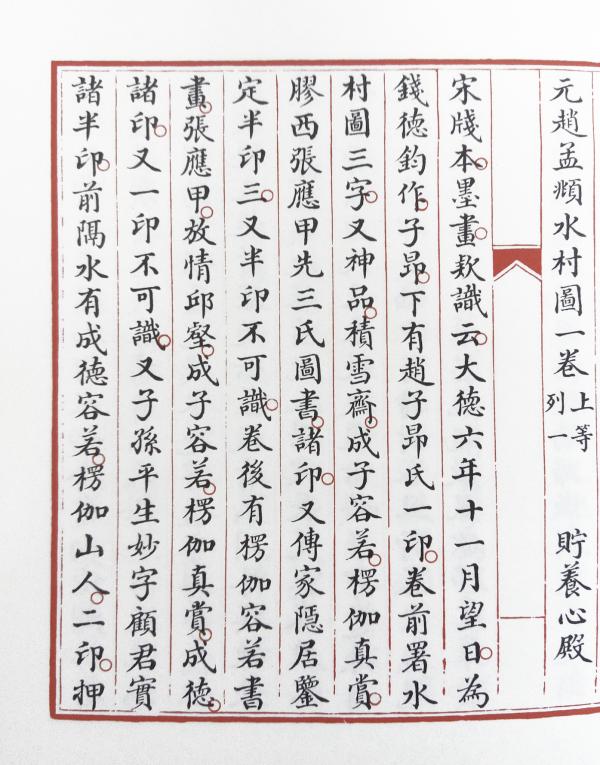 元趙孟頫水村圖一卷 上等列一 貯養心殿
宋牋本墨畫欵識云大德六年十一月望日為
錢德鈞作子昂下有趙子昂氏一印卷前署水
村圖三字又神品積雪齋成子容若楞伽真賞
膠西張應甲先三氏圖書諸印又傳家隱居鑒
定半印三又半印不可識卷後有楞伽容若書
畫張應甲放情邱壑成子容若楞伽真賞成德
諸印又一印不可識又子孫平生妙字顧君實
諸半印前隅水有成德容若楞伽山人二印押